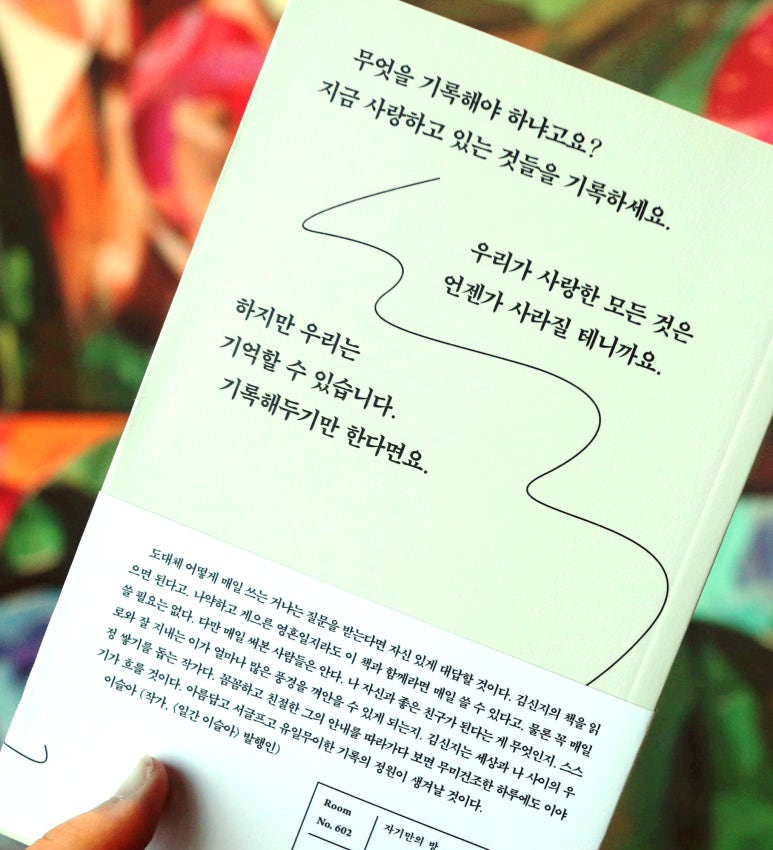 무엇을 기록해야 하냐고요?
지금 사랑하고 있는 것들을 기록하세요.
우리가 사랑한 모든 것은
언젠가 사라질 테니까요.
하지만 우리는
기억할 수 있습니다.
기록해두기만 한다면요.
도대체 어떻게 매일 쓰는 거냐는 질문을 받는다면 자신 있게 대답할 것이다. 김신지의 책을 읽
으면 된다고. 나약하고 게으른 영혼일지라도 이 책과 함께라면 매일 쓸 수 있다고. 물론 꼭 매일
쓸 필요는 없다. 다만 매일 써본 사람들은 안다. 나 자신과 좋은 친구가 된다는 게 무엇인지. 스스
로와 잘 지내는 이가 얼마나 많은 풍경을 껴안을 수 있게 되는지. 김신지는 세상과 나 사이의 우
정 쌓기를 돕는 작가다. 꼼꼼하고 친절한 그의 안내를 따라가다 보면 무미건조한 하루에도 이야
기가 흐를 것이다. 아름답고 서글프고 유일무이한 기록의 정원이 생겨날 것이다.
이슬아 (작가, 〈일간 이슬아〉 발행인)
Room
No. 602
자기만의 방